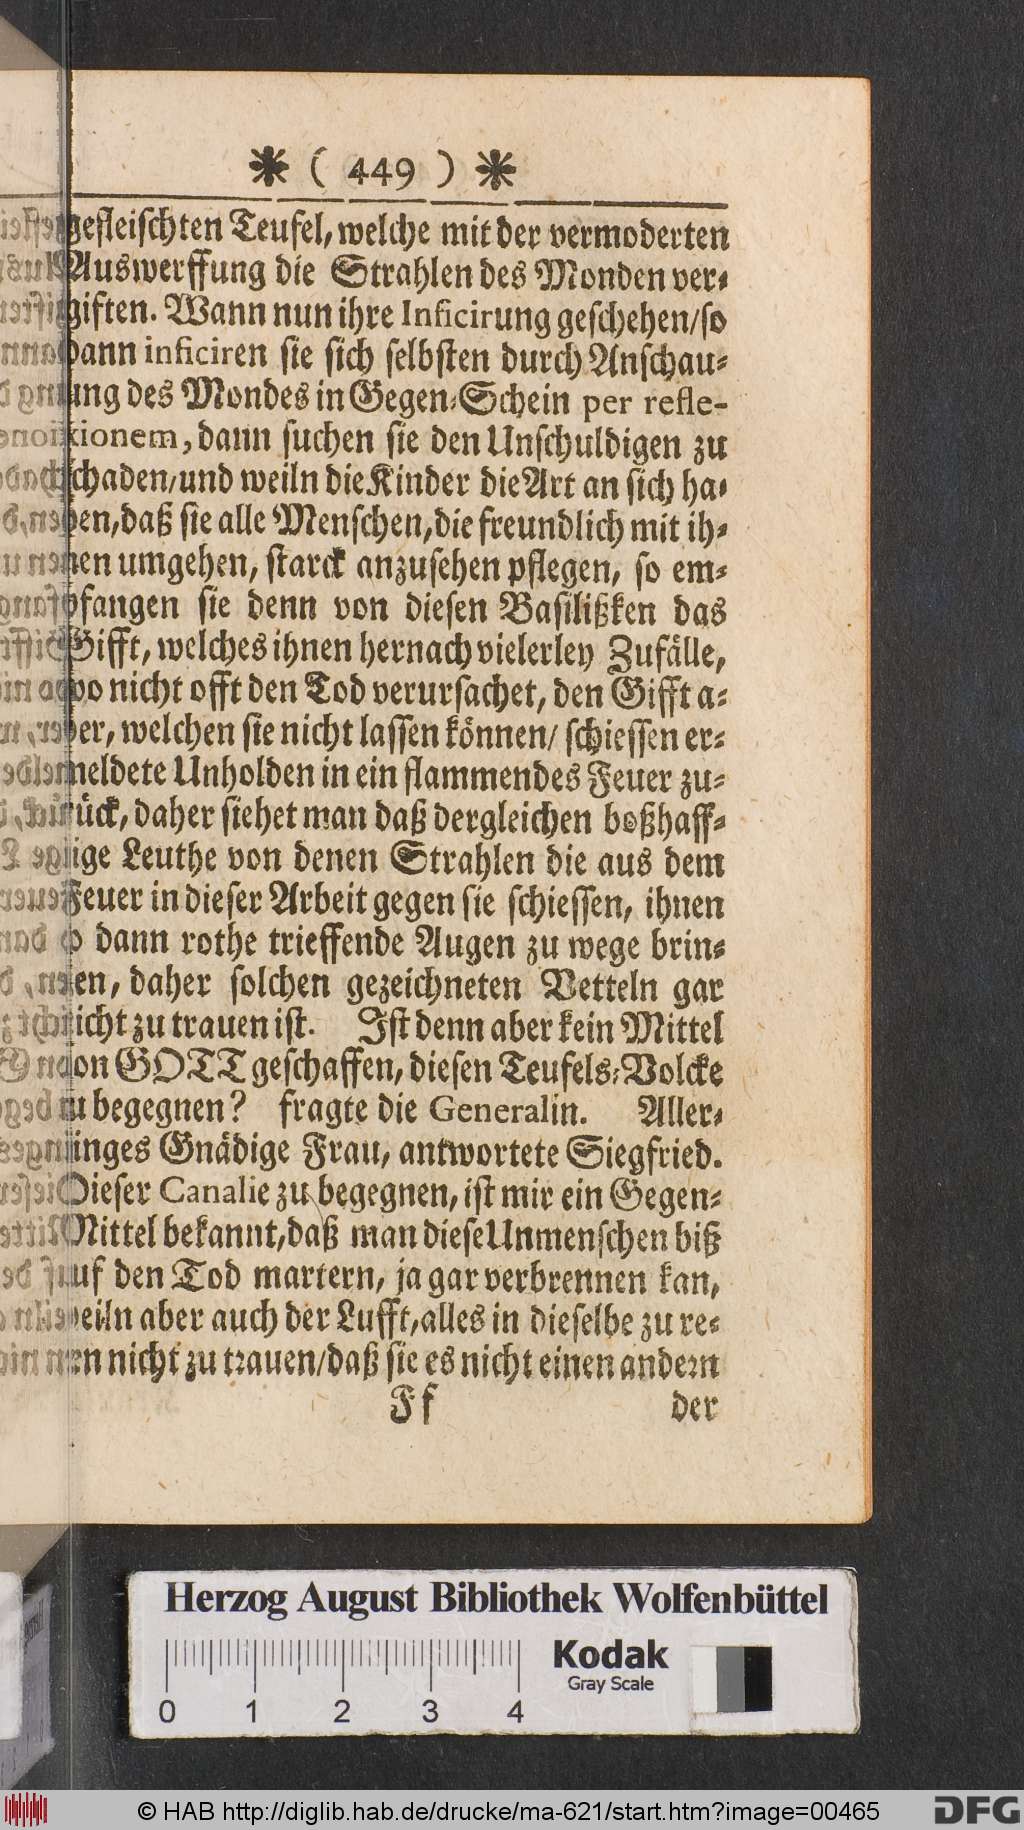 * ( 449 ) *
gefleischten Teufel, welche mit der vermoderten
Auswerffung die Strahlen des Monden ver-
giften. Wann nun ihre Inficirung geschehen/so
dann inficiren sie sich selbsten durch Anschau-
ung des Mondes in Gegen-Schein per refle-
xionem, dann suchen sie den Unschuldigen zu
schaden/und weiln die Kinder die Art an sich ha-
ben, daß sie alle Menschen, die freundlich mit ih-
nen umgehen, starck anzusehen pflegen, so em-
pfangen sie denn von diesen Basilißken das
Gifft, welches ihnen hernach vielerley Zufälle,
wo nicht offt den Tod verursachet, den Gifft a-
ber, welchen sie nicht lassen können/ schiessen er-
meldete Unholden in ein flammendes Feuer zu-
rück, daher siehet man daß dergleichen boßhaff-
tige Leuthe von denen Strahlen die aus dem
Feuer in dieser Arbeit gegen sie schiessen, ihnen
so dann rothe trieffende Augen zu wege brin-
gen, daher solchen gezeichneten Vetteln gar
nicht zu trauen ist. Ist denn aber kein Mittel
von GOTT geschaffen, diesen Teufels-Volcke
zu begegnen? fragte die Generalin. Aller-
dinges Gnädige Frau, antwortete Siegfried.
Dieser Canalie zu begegnen, ist mir ein Gegen-
Mittel bekannt, daß man diese Unmenschen biß
auf den Tod martern, ja gar verbrennen kan,
weiln aber auch der Lufft, alles in dieselbe zu re-
den nicht zu trauen/daß sie es nicht einen andern
Ff der
Herzog August Bibliothek Wolfenbüttel
Kodak
Gray Scale
0 1 2 3 4
© HAB http://diglib.hab.de/drucke/ma-621/start.htm?image=00465
DFG